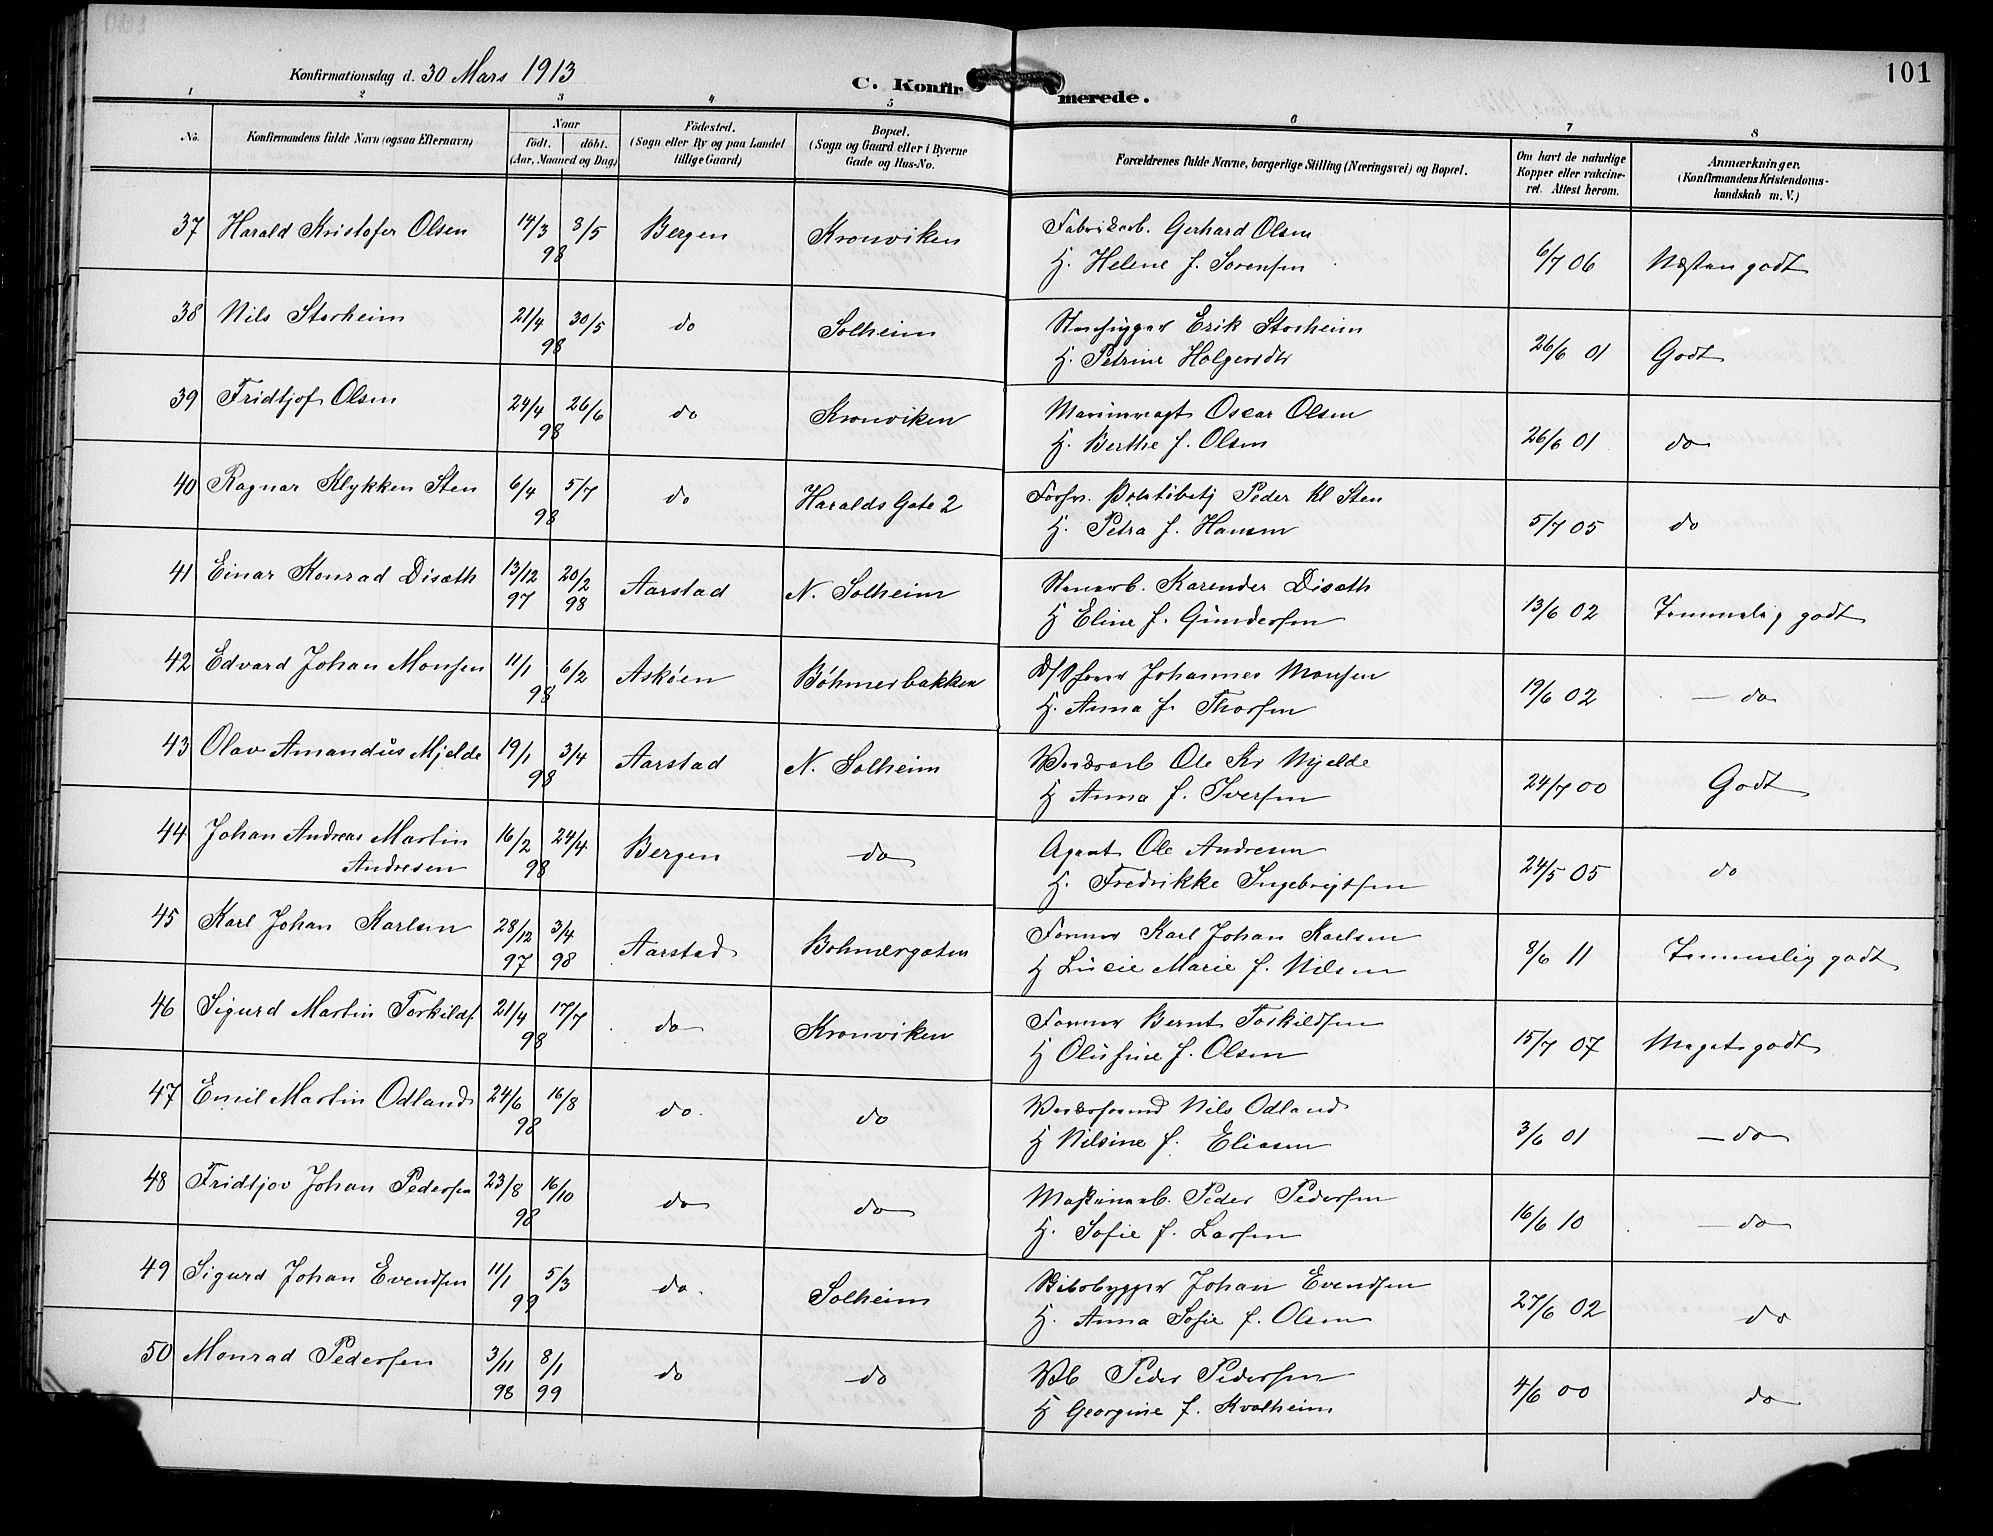 101
Konfirmationsdag d. 30 Mars 1913
C. Konfirmerede.
1 2 3 4 5 6 7 8
No.
Konfirmandens fulde Navn (ogsaa Efternavn)
Naar
födt. döbt.
(Aar, Maaned og Dag)
Födested.
(Sogn eller By og paa Landet
tillige Gaard)
Bopæl.
(Sogn og Gaard eller i Byerne
Gade og Hus-No.
Forældrenes fulde Navne, borgerlige Stilling (Næringsvei) og Bopæl.
Om havt de naturlige
Kopper eller vakcine-
ret. Attest herom.
Anmærkninger.
(Konfirmandens Kristendoms-
kundskab m. V.)
37 Harald Kristofer Olsen 14/3 8/5 98 Bergen Kronviken Fabrikarb. Gerhard Olsen
H. Helene f. Sørensen 6/7 06 Næsten godt
38 Nils Storheim 21/4 30/5 98 do Solheim Erik Storheim
H. Petrine Holgersdtr 26/6 01 Godt
39 Fridtjof Olsen 24/4 26/6 98 do Kronviken Oscar Olsen
H. Berthe f. Olsen 26/6 01 do
40 Ragnar Klykken Sten 6/4 5/7 98 do Haralds Gate 2 Peder Kl Sten
H. Petra f. Hansen 5/7 05 do
41 Einar Konrad Disæth 13/12 97 20/2 98 Aarstad N. Solheim Stenarb. Karender Disæth
H Eline f. Gundersen 13/6 02 Temmelig godt
42 Edvard Johan Monsen 11/1 6/2 98 Askøen Bøhmerbakken Johannes Monsen
H. Anna f. Thorsen 19/6 02 — do
43 Olav Amandus Mjelde 19/1 3/4 98 Aarstad N. Solheim Verksarb Ole Kr Mjelde
H Anna f. Iversen 24/7 00 Godt
44 Johan Andreas Martin
Andresen 16/2 24/4 98 Bergen do Agent Ole Andresen
H. Fredrikke Ingebrigtsen 24/5 05 do
45 Karl Johan Karlsen 28/12 97 3/4 98 Aarstad Bohmergaten Former Karl Johan Karlsen
H Lucie Marie f. Nilsen 8/6 11 Temmelig godt
46 Sigurd Martin Torkildf 21/4 17/7 98 do Kronviken Former Bernt Torkildsen
H Olufine f. Olsen 15/7 07 Meget godt
47 Emil Martin Odland 24/6 16/8 98 do. do Nils Odland
H Nilsine f. Eliasen 3/6 01 — do
48 Fridtjov Johan Pedersen 23/8 16/10 98 do do Maskinarb. Peder Pedersen
H. Sofie f. Larsen 16/6 10 — do
49 Sigurd Johan Evendsen 11/1 5/3 99 do. Solheim Johan Evendsen
H. Anna Sofie f. Olsen 27/6 02 do
50 Monrad Pedersen 3/11 98 8/1 99 do do Peder Pedersen
H Georgine f. Kvalheim 4/6 00 do